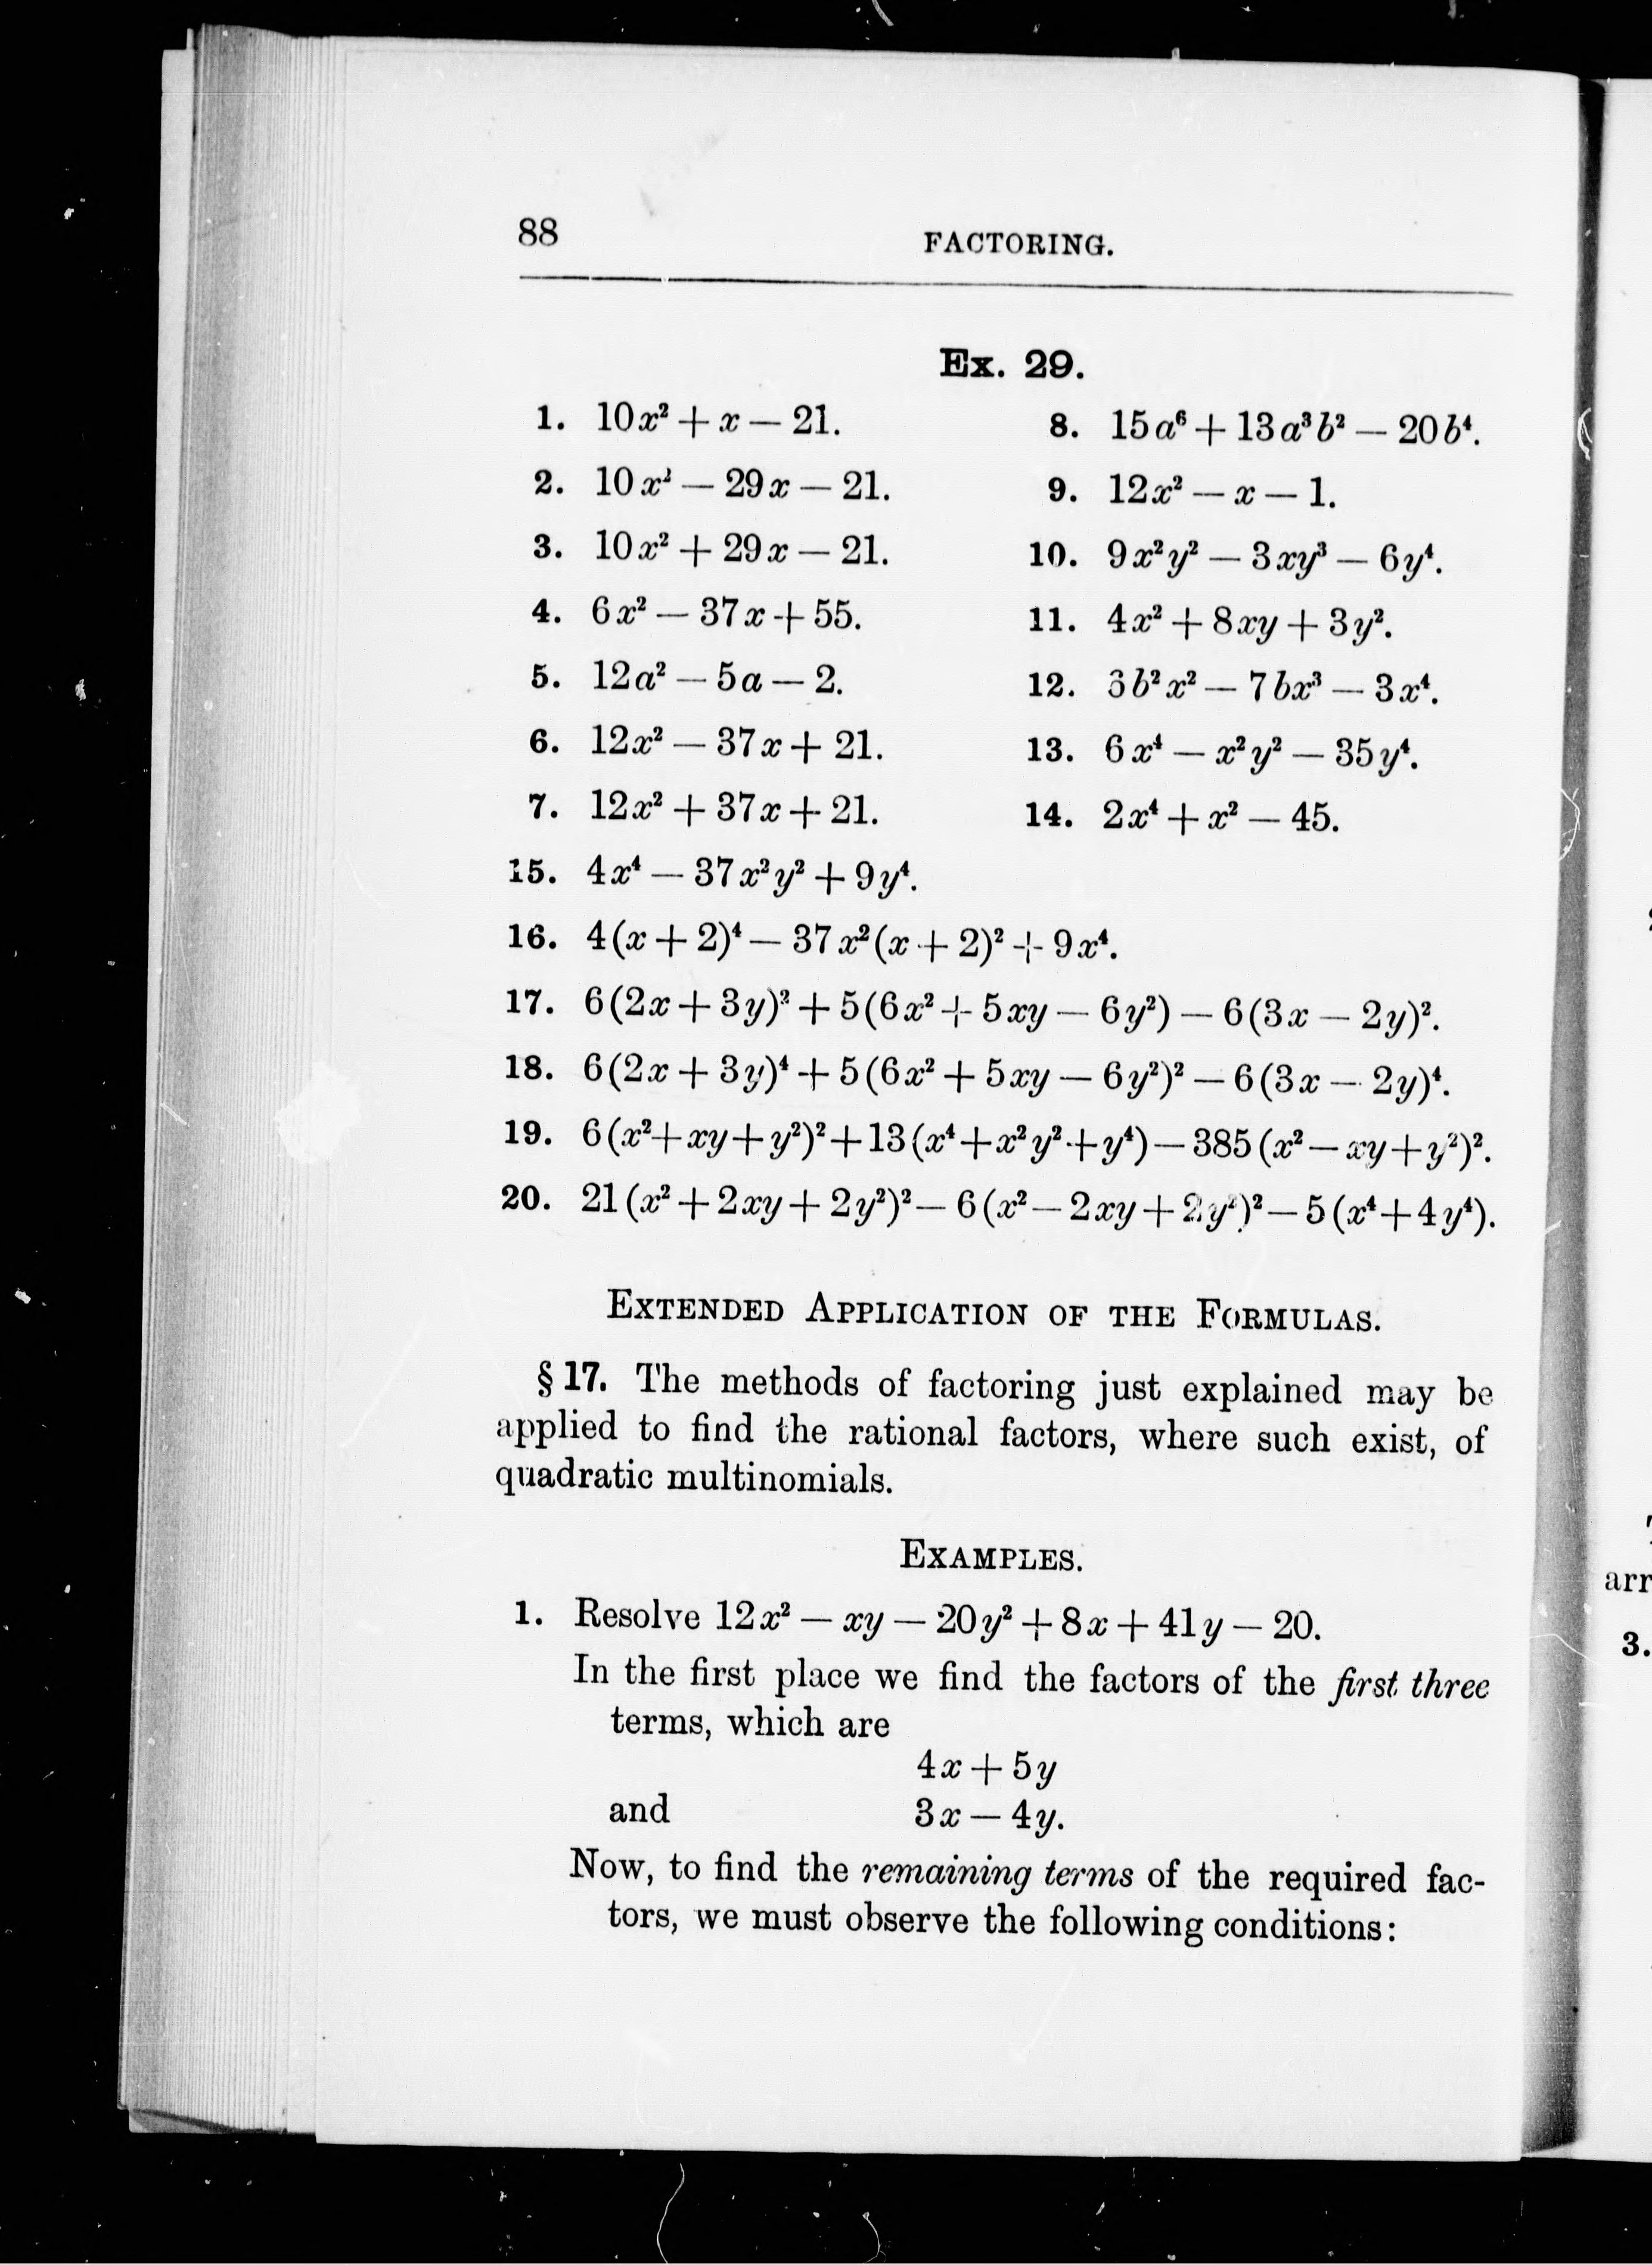 88
FACTORING.
Ex. 29.
1. 10x² + x − 21.
2. 10x² − 29x − 21.
3. 10x² + 29x − 21.
4. 6x² − 37x + 55.
5. 12a² − 5a − 2.
6. 12x² − 37x + 21.
7. 12x² + 37x + 21.
8. 15a⁶ + 13a³b² − 20b⁴.
9. 12x² − x − 1.
10. 9x²y² − 3xy³ − 6y⁴.
11. 4x² + 8xy + 3y².
12. 6b²x² − 7bx³ − 3x⁴.
13. 6x⁴ − x²y² − 35y⁴.
14. 2x⁴ + x² − 45.
15. 4x⁴ − 37x²y² + 9y⁴.
16. 4(x + 2)⁴ − 37x²(x + 2)² + 9x⁴.
17. 6(2x + 3y)² + 5(6x² + 5xy − 6y²) − 6(3x − 2y)².
18. 6(2x + 3y)⁴ + 5(6x² + 5xy − 6y²)² − 6(3x − 2y)⁴.
19. 6(x² + xy + y²)² + 13(x⁴ + x²y² + y⁴) − 385(x² − xy + y²)².
20. 21(x² + 2xy + 2y²)² − 6(x² − 2xy + 2y²)² − 5(x⁴ + 4y⁴).
EXTENDED APPLICATION OF THE FORMULAS.
§ 17. The methods of factoring just explained may be
applied to find the rational factors, where such exist, of
quadratic multinomials.
EXAMPLES.
1. Resolve 12x² − xy − 20y² + 8x + 41y − 20.
In the first place we find the factors of the first three
terms, which are
4x + 5y
and 3x − 4y.
Now, to find the remaining terms of the required fac-
tors, we must observe the following conditions:
arr
3.